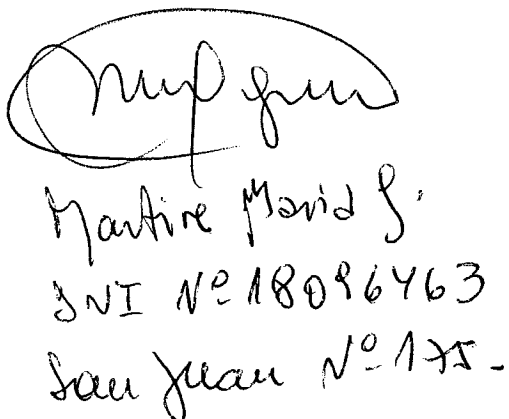 Martire María G.
DNI Nº 18096463
San Juan Nº 175.-